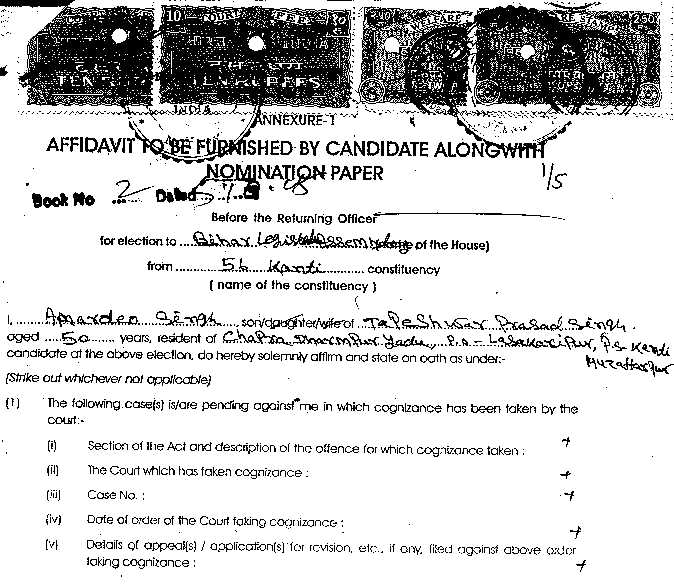 10
TEN RUPEES
250
INDIA
ANNEXURE-1
AFFIDAVIT TO BE FURNISHED BY CANDIDATE ALONGWITH
NOMINATION PAPER
1/5
Book No 2 Dated
Before the Returning Officer
for election to Bihar Legislative Assembly of the House)
from 56 Kanti constituency
( name of the constituency )
I, Amardeo Singh son/daughter/wife of Tapeshwar Prasad Singh
aged 50 years, resident of Chapra Dharmpur Yadu, P.o - Laskaripur, P.S- Kanti
Muzaffarpur
candidate at the above election, do hereby solemnly affirm and state on oath as under:-
(Strike out whichever not applicable)
(1) The following case(s) is/are pending against me in which cognizance has been taken by the
court:-
(i) Section of the Act and description of the offence for which cognizance taken :
(ii) The Court which has taken cognizance :
(iii) Case No. :
(iv) Date of order of the Court taking cognizance :
(v) Details of appeal(s) / application(s) for revision, etc., if any, filed against above order
taking cognizance :